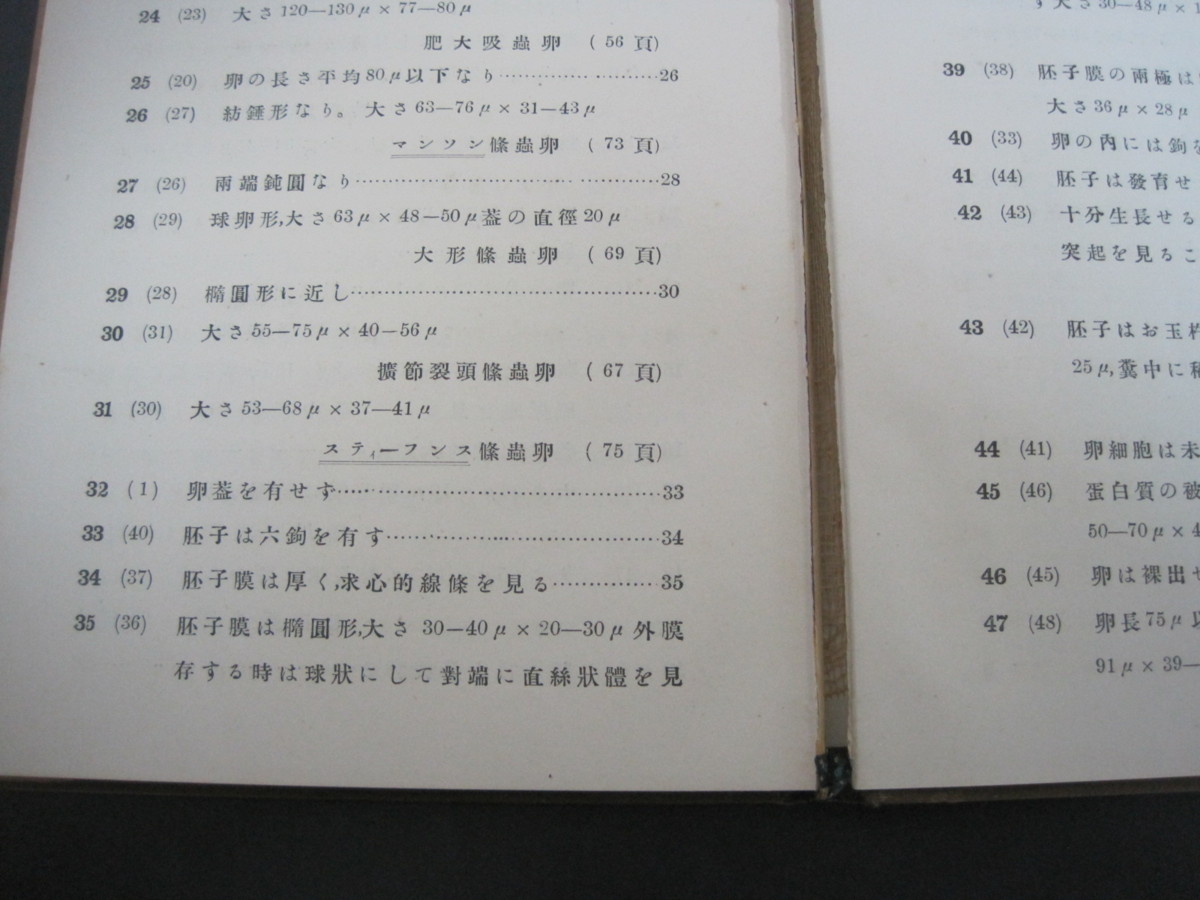 24 (23) 大さ 120—130μ × 77—80μ
肥大吸蟲卵 ( 56 頁)
25 (20) 卵の長さ平均80μ以下なり…………………26
26 (27) 紡錘形なり。 大さ 63—76μ × 31—43μ
マンソン條蟲卵 ( 73 頁)
27 (26) 兩端鈍圓なり…………………………………28
28 (29) 球卵形,大さ 63μ × 48—50μ蓋の直徑20μ
大形條蟲卵 ( 69 頁)
29 (28) 橢圓形に近し…………………………………30
30 (31) 大さ 55—75μ × 40—56μ
擴節裂頭條蟲卵 ( 67 頁)
31 (30) 大さ 53—68μ × 37—41μ
スティーフンス條蟲卵 ( 75 頁)
32 ( 1 ) 卵蓋を有せず…………………………………33
33 (40) 胚子は六鉤を有す……………………………34
34 (37) 胚子膜は厚く,求心的線條を見る…………35
35 (36) 胚子膜は橢圓形,大さ 30—40μ × 20—30μ 外膜
存する時は球狀にして對端に直絲狀體を見
大さ 30—48μ × 1
39 (38) 胚子膜の兩極は
大さ 36μ × 28μ
40 (33) 卵の內には鉤を
41 (44) 胚子は發育せ
42 (43) 十分生長せる
突起を見るこ
43 (42) 胚子はお玉杓
25μ,糞中に稀
44 (41) 卵細胞は未
45 (46) 蛋白質の被
50—70μ × 4
46 (45) 卵は裸出せ
47 (48) 卵長 75μ以
91μ × 39—